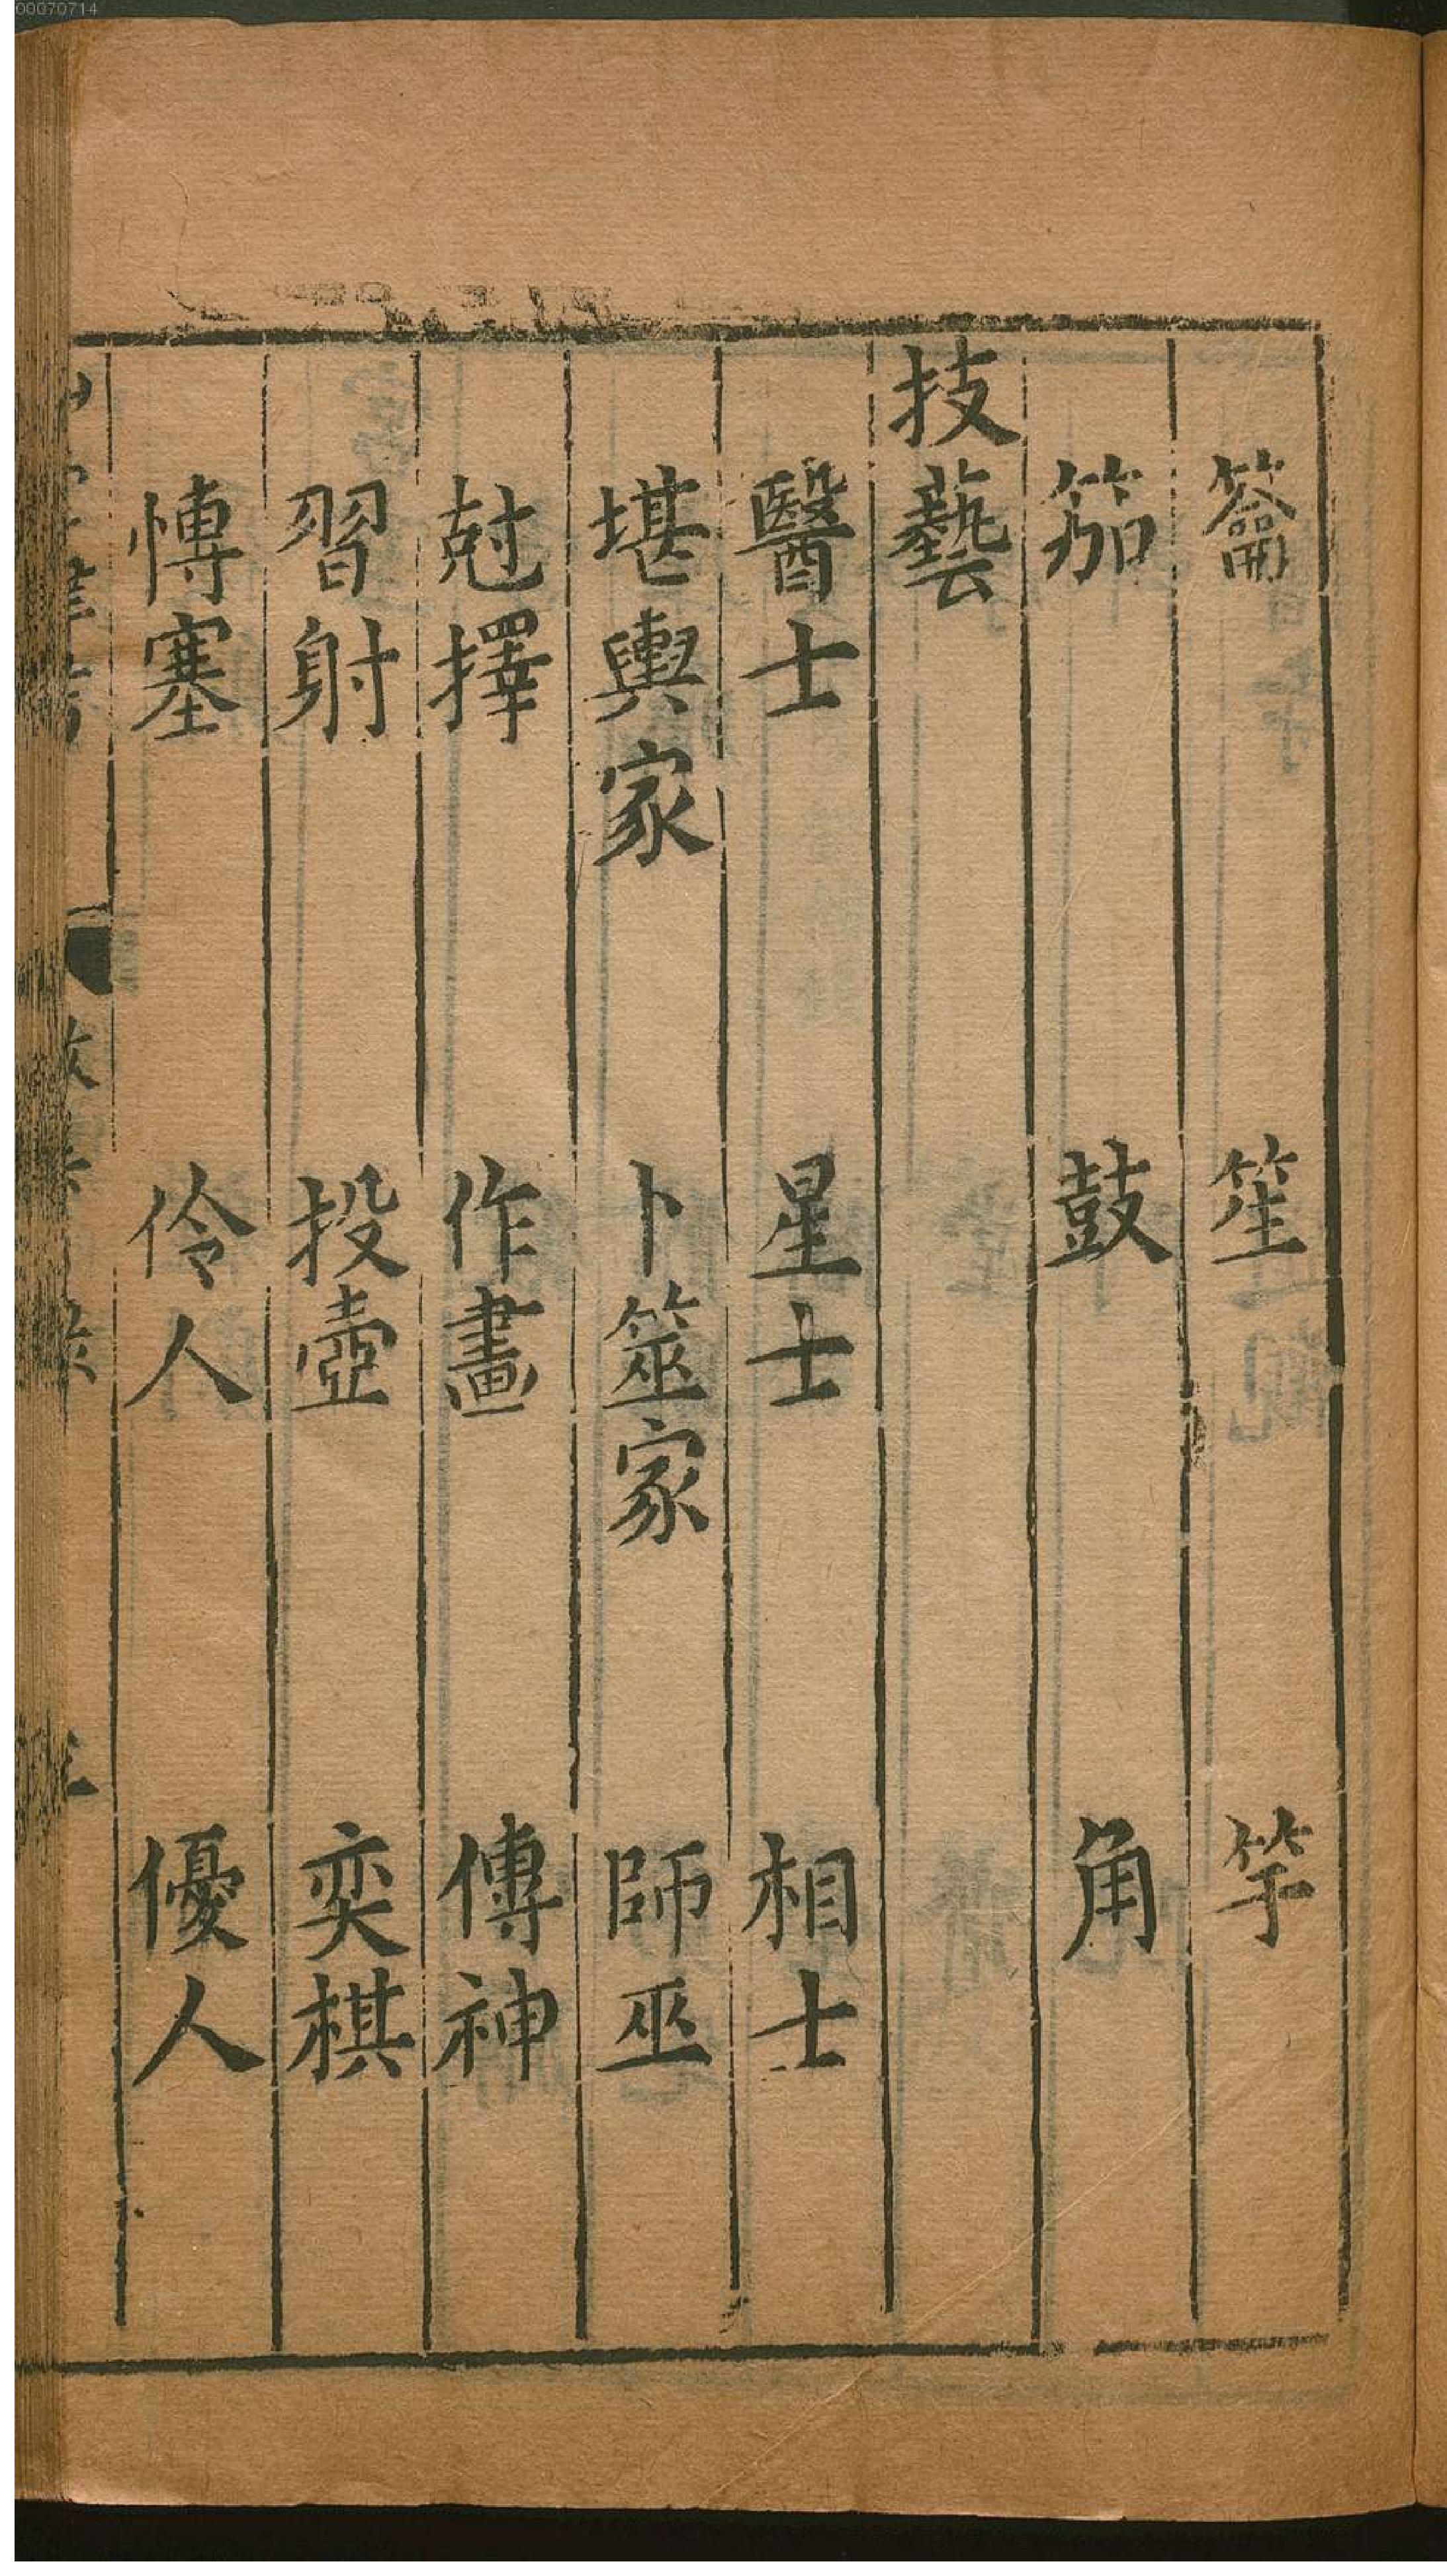 00070714
籥 笙 竽
笳 鼓 角
技藝
醫士 星士 相士
堪輿家 卜筮家 師巫
尅擇 作畫 傳神
習射 投壺 奕棋
愽塞 伶人 優人